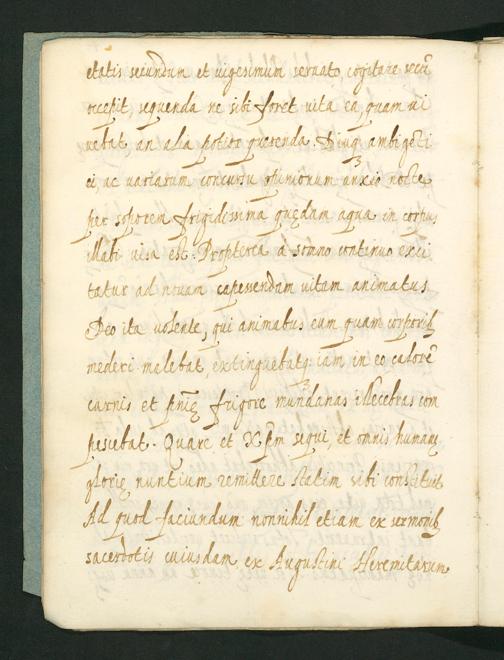 etatis secundum et uigesimum seruato, cogitare secũ
occepit, sequenda ne sibi foret uita ea, quam ui
uebat, an alia potiro querenda. Diuq; ambigẽti
ei ac uariarum concursu opinionum anxio nocte
per soporem frigidissima quędam aqua in corpus
illabi uisa est. Propterea à somno continuo exci
tatur ad nouam capessendam uitam animatus.
Deo ita uolente, qui animabus cum quam corporib;
mederi malebat, extinguebatq; iam in eo calorẽ
carnis et pñię frigore mundanas illecebras com
pescebat. Quare et Xp̃m sequi, et omnis humanę
glorię nuntium remittere statim sibi constituit.
Ad quod faciundum nonnihil etiam ex sermonib;
sacerdotis cuiusdam ex Augustini Heremitarum